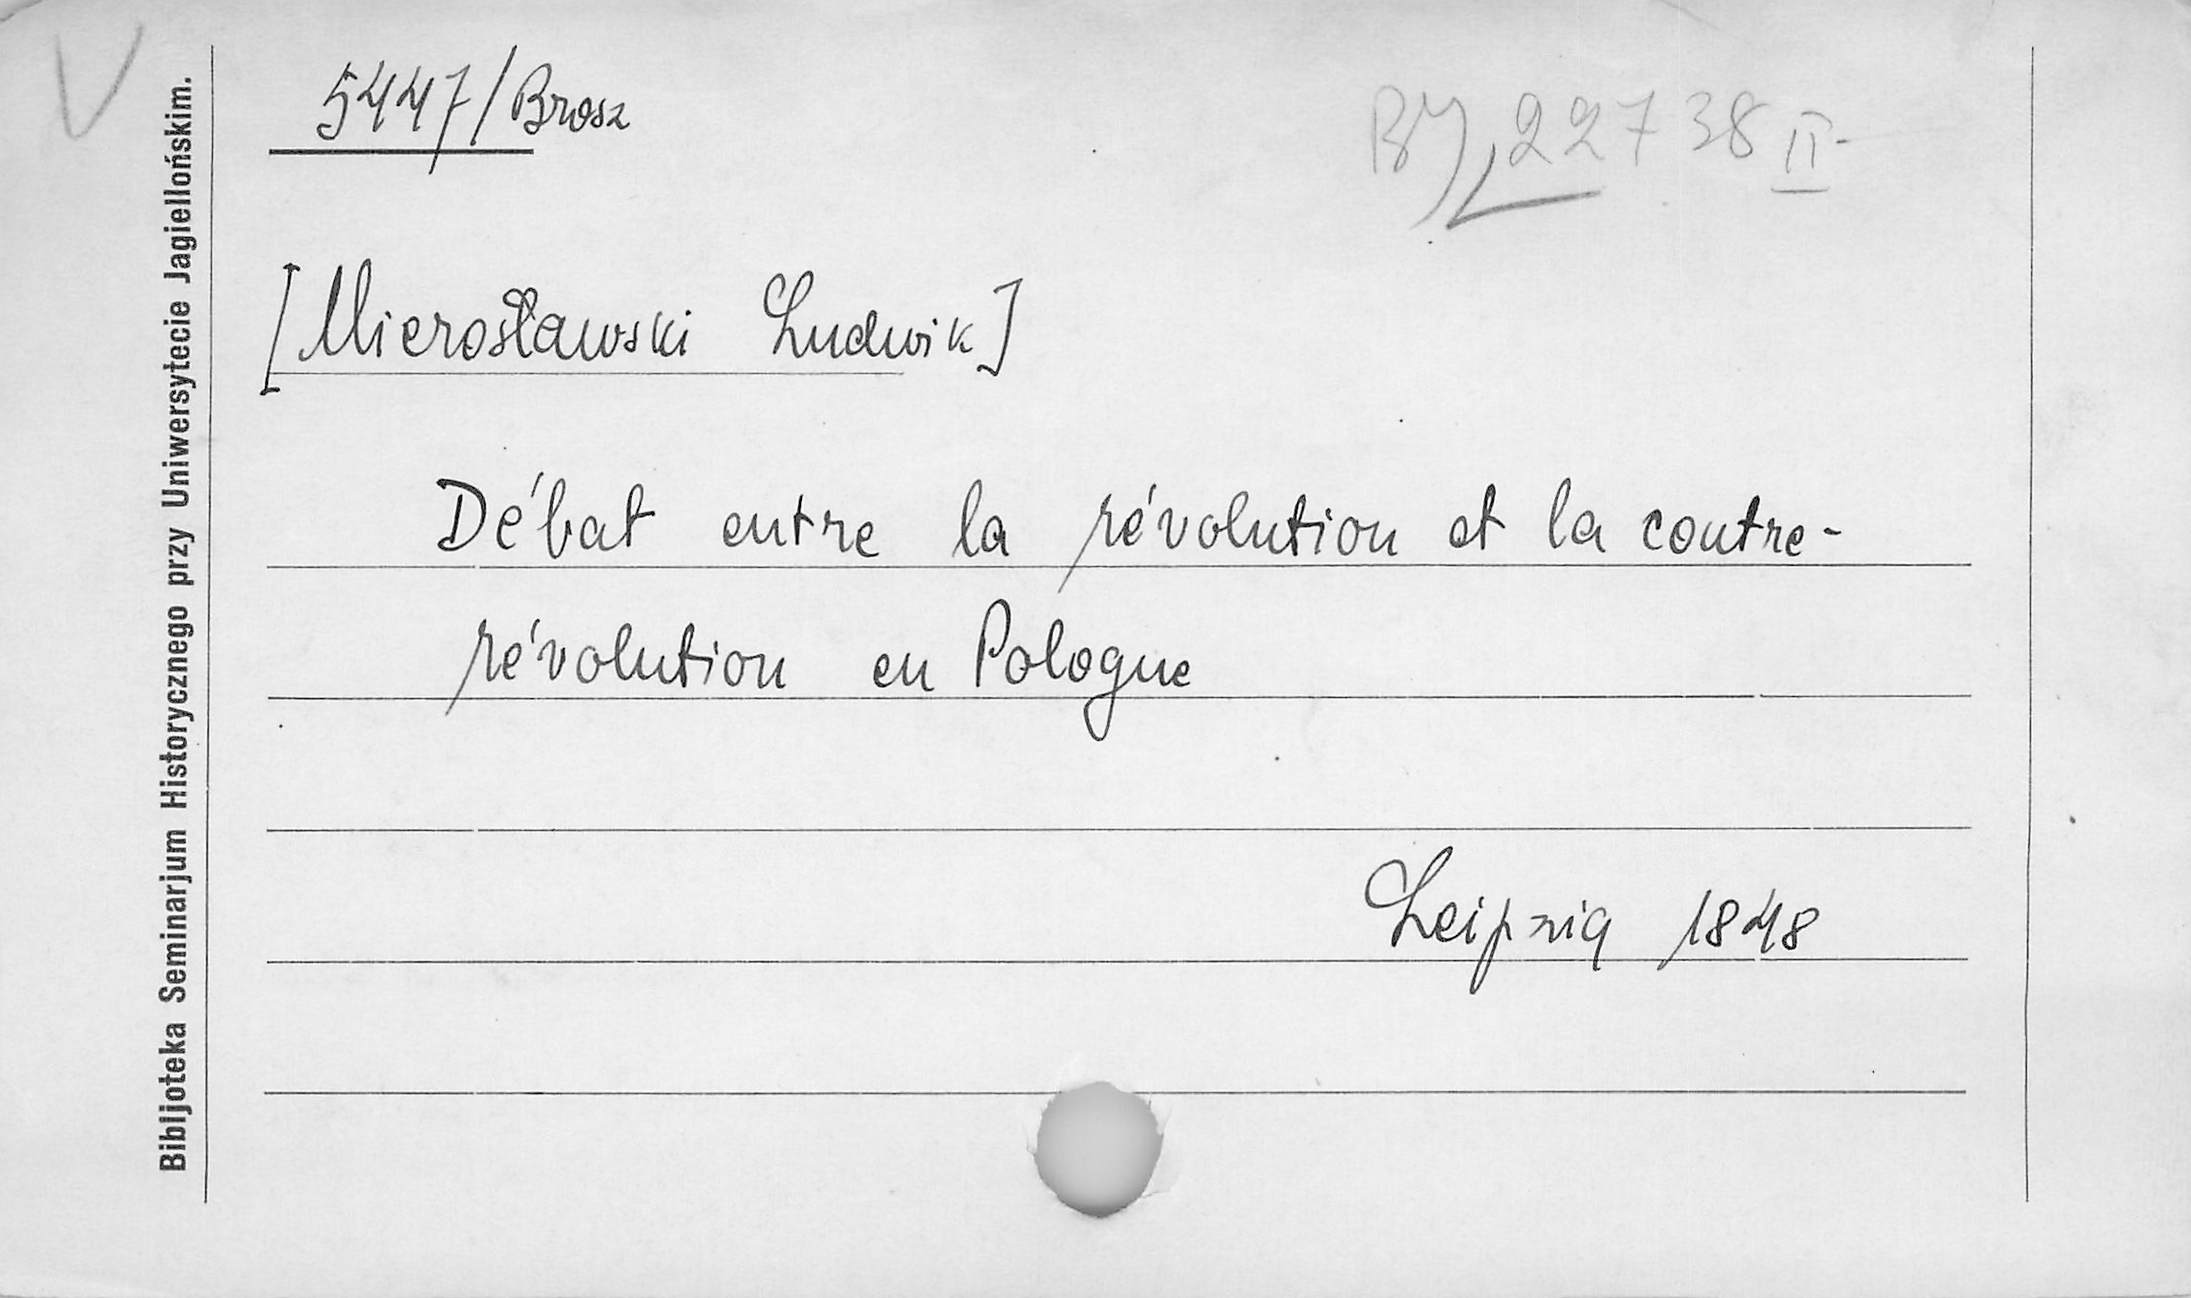 V
5447/Brosz
BJ 22738 II
[Mierosławski Ludwik]
Débat entre la révolution et la contre-
révolution en Pologne
Leipzig 1848
Bibljoteka Seminarjum Historycznego przy Uniwersytecie Jagiellońskim.